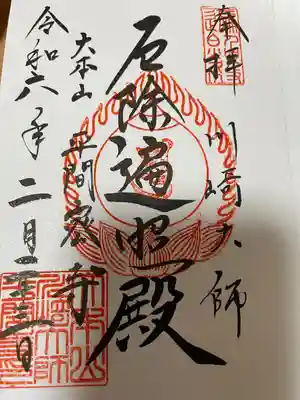 奉拝
川崎大師
厄除遍照殿
大本山
平間寺
令和六年二月二十三日